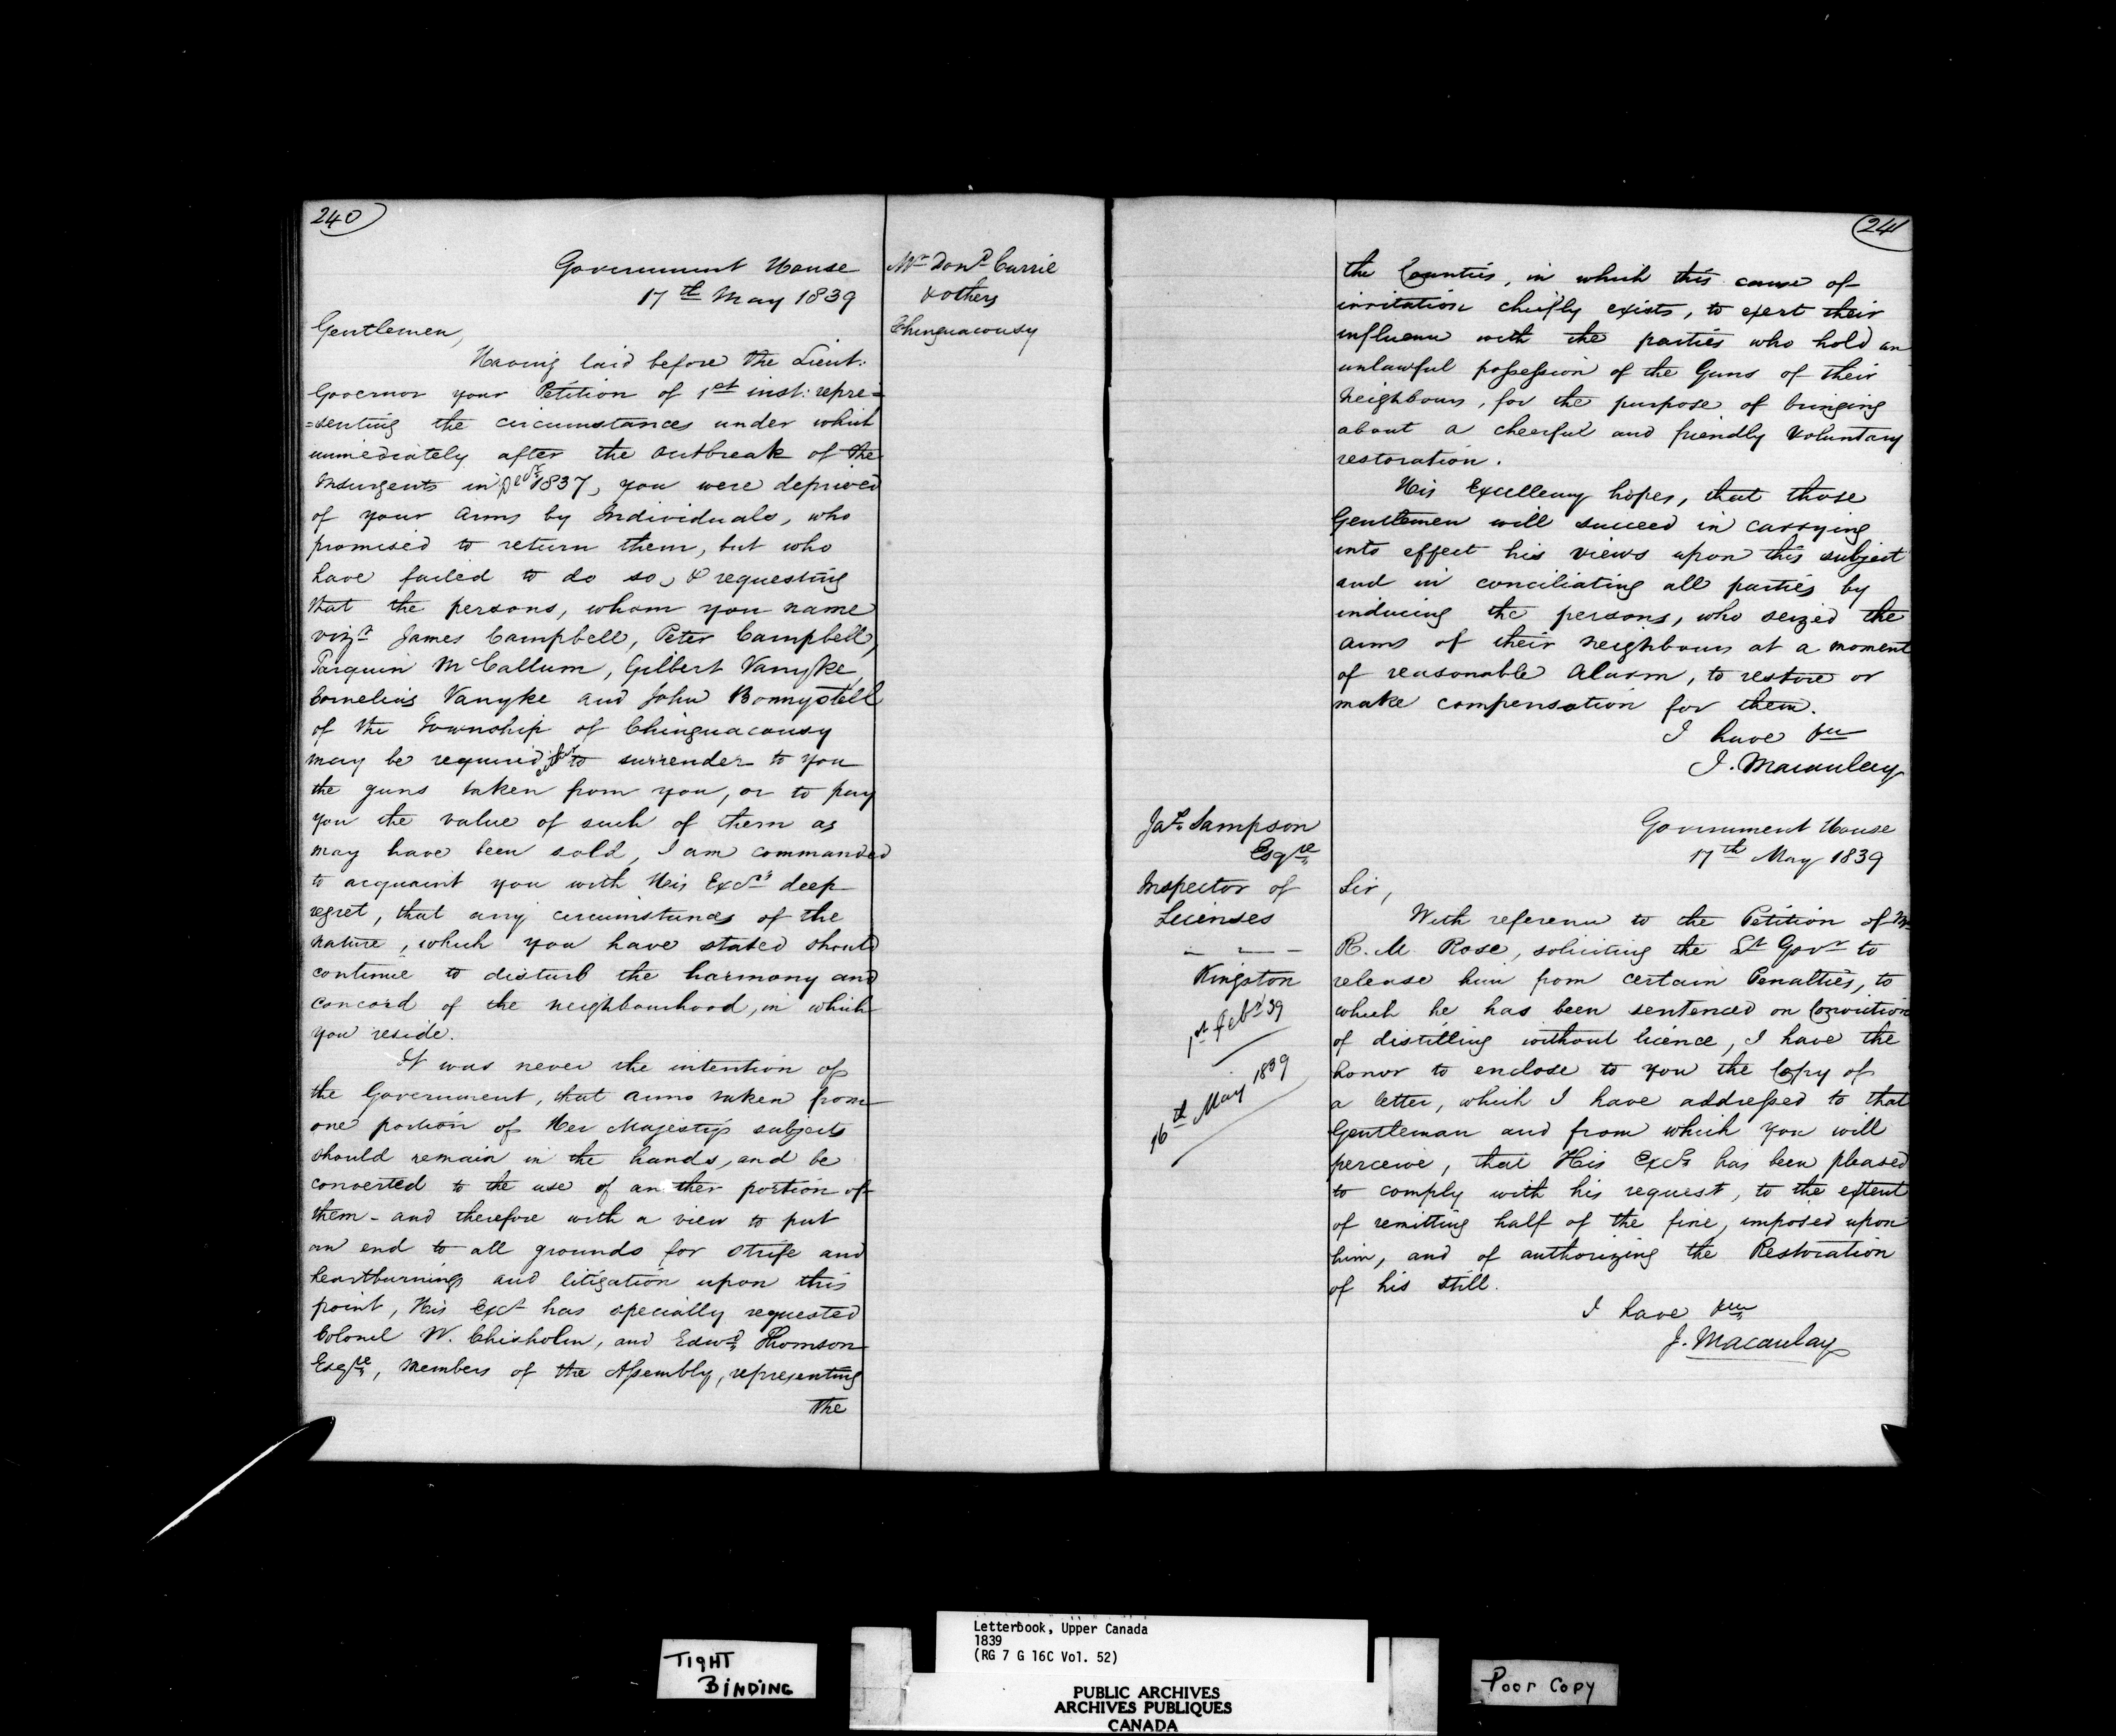 240
Government House
17th May 1839
Mr Dond Currie
& others
Chinguacousy
Gentlemen,
Having laid before the Lieut:
Governor your Petition of 1st inst: repre=
=senting the circumstances under which
immediately after the outbreak of the
Insurgents in Decr 1837, you were deprived
of your arms by Individuals, who
promised to return them, but who
have failed to do so, & requesting
that the persons, whom you name
vizt James Campbell, Peter Campbell,
Tarquin McCallum, Gilbert Vanyke,
Cornelius Vanyke and John Bonnystell
of the Township of Chinguacousy
may be required to surrender to you
the guns taken from you, or to pay
you the value of such of them as
may have been sold, I am commanded
to acquaint you with His Excys deep
regret, that any circumstances of the
nature, which you have stated should
continue to disturb the harmony and
concord of the neighbourhood, in which
you reside.
It was never the intention of
the Government, that arms taken from
one portion of Her Majesty's subjects
should remain in the hands, and be
converted to the use of another portion of
them - and therefore with a view to put
an end to all grounds for strife and
heartburnings and litigation upon this
point, His Excy has specially requested
Colonel W. Chisholm, and Edwd Thomson
Esqre, Members of the Assembly, representing
the
241
the Counties, in which this cause of
irritation chiefly exists, to exert their
influence with the parties who hold an
unlawful possession of the Guns of their
Neighbours, for the purpose of bringing
about a cheerful and friendly voluntary
restoration.
His Excellency hopes, that those
Gentlemen will succeed in carrying
into effect his views upon this subject
and in conciliating all parties by
inducing the persons, who seized the
arms of their neighbours at a moment
of reasonable alarm, to restore or
make compensation for them.
I have &c
J. Macaulay
Jas. Sampson
Esqre
Inspector of
Licenses
Kingston
1st Feby 39
16th May 1839
Government House
17th May 1839
Sir,
With reference to the Petition of Mr
R. M. Rose, soliciting the Lt Govr to
release him from certain Penalties, to
which he has been sentenced on Conviction
of distilling without licence, I have the
honor to enclose to you the Copy of
a letter, which I have addressed to that
Gentleman and from which you will
perceive, that His Excy has been pleased
to comply with his request, to the extent
of remitting half of the fine, imposed upon
him, and of authorizing the Restoration
of his still.
I have &c
J. Macaulay
TIGHT
BINDING
Letterbook, Upper Canada
1839
(RG 7 G 16C Vol. 52)
PUBLIC ARCHIVES
ARCHIVES PUBLIQUES
CANADA
Poor Copy